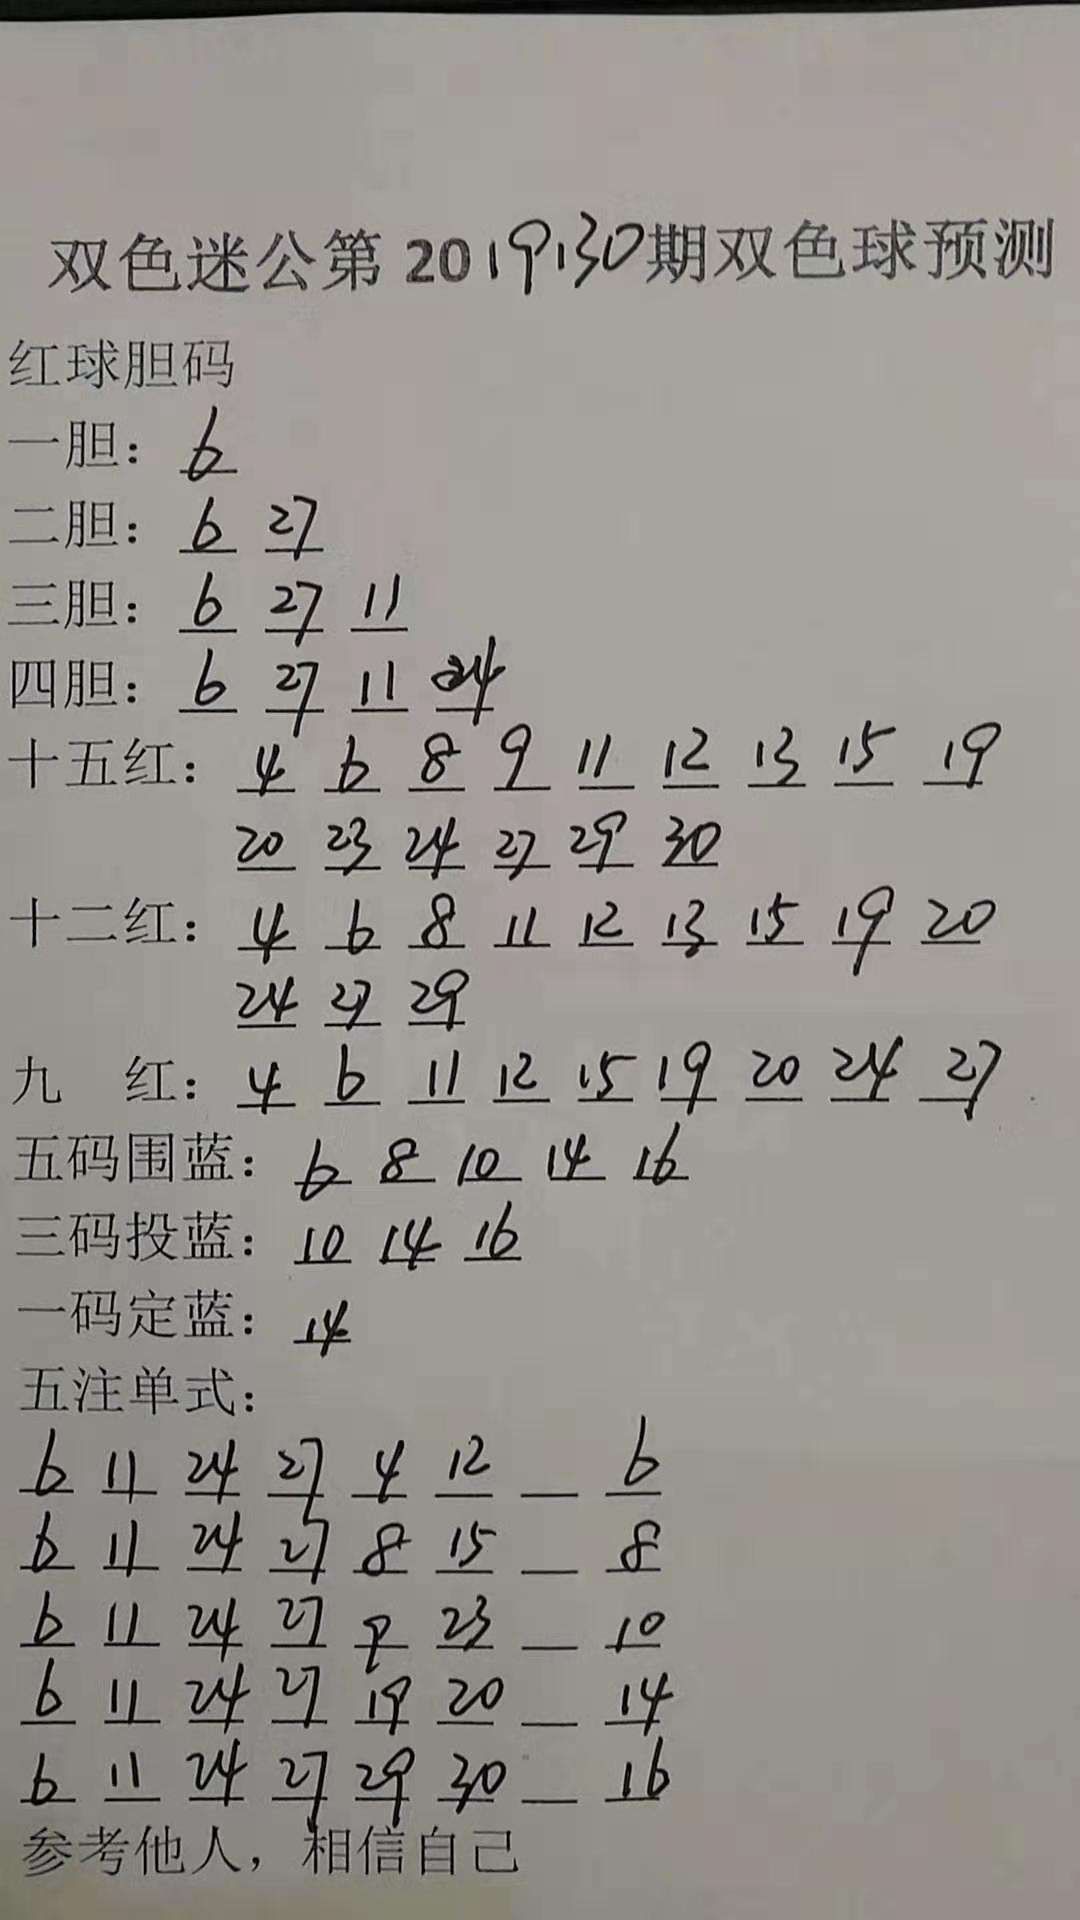 双色迷公第2019130期双色球预测
红球胆码
一胆：6
二胆：6 27
三胆：6 27 11
四胆：6 27 11 24
十五红：4 6 8 9 11 12 13 15 19
20 23 24 27 29 30
十二红：4 6 8 11 12 13 15 19 20
24 27 29
九 红：4 6 11 12 15 19 20 24 27
五码围蓝：6 8 10 14 16
三码投蓝：10 14 16
一码定蓝：14
五注单式：
6 11 24 27 4 12 _ 6
6 11 24 27 8 15 _ 8
6 11 24 27 9 23 _ 10
6 11 24 27 19 20 _ 14
6 11 24 27 29 30 _ 16
参考他人，相信自己